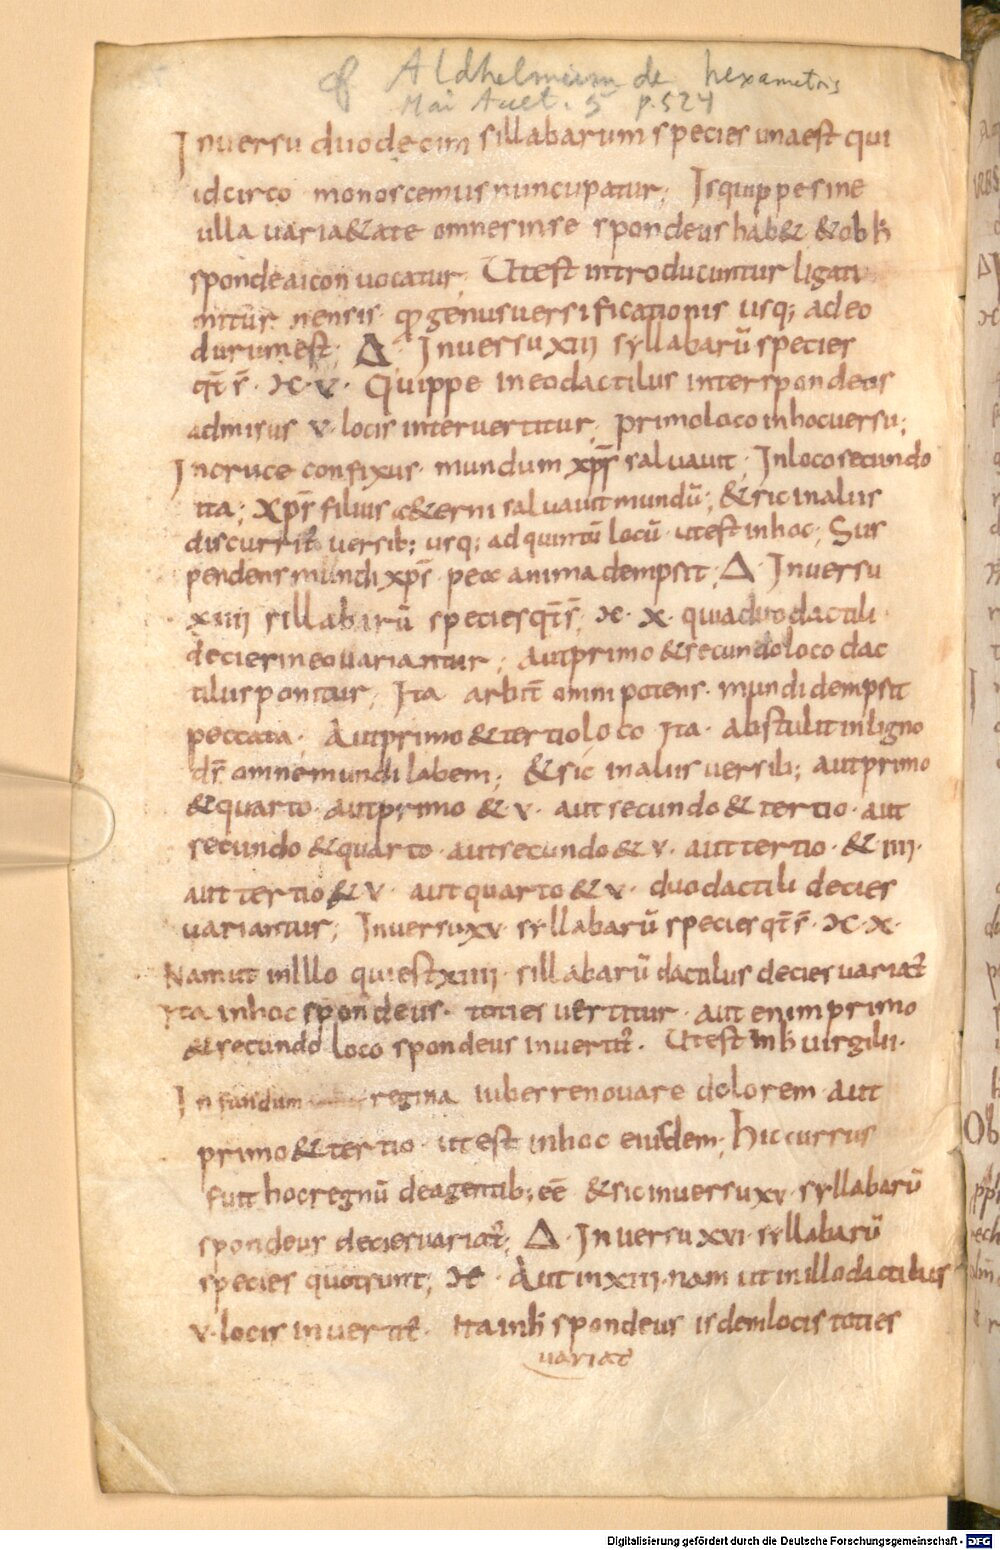 cf Aldhelmum de hexametris
Mai Auct. 5 p. 524
Inuersu duodecim sillabarum species una est qui
idcirco monoscemus nuncupatur; Is quippe sine
ulla uari&ate omnes in se spondeus hab& &ob h
spondeaicon uocatur; Ut est introducuntur ligati
nensis genus uersificationis usq; adeo
durum est; Δ Inuersu xiii syllabarũ species
V Quippe in eo dactilus inter spondeos
admisus v locis interuertitur; primo loco in hoc uersu;
In cruce confixus mundum xp̄s saluauit; In loco secundo
ita; Xp̄s filius &erni saluauit mundũ; &sic in aliis
discurrit uersib; usq; ad quintũ locũ ut est in hoc; Sus
pendens mundi xp̄s anima dempsit; Δ Inuersu
xiiii sillabarũ species qt̄ s̄; X quia duo dactili
decies in eo uariantur; Aut primo & secundo loco dac
tilus ponitur; Ita arbit̄ omnipotens mundi dempsit
peccata; Aut primo & tertio loco Ita abstulit in ligno
dr̄ omne mundi labem; &sic in aliis uersib; aut primo
&quarto aut primo & v aut secundo & tertio aut
secundo &quarto aut secundo & v aut tertio & iiii
aut tertio & v aut quarto & v duo dactili decies
uariantur; Inuersu xv syllabarũ species qt̄ s̄ X
Nam ut in illo qui est xiiii sillabarũ dactilus decies uariat̄
Ita in hoc spondeus toties uertitur aut enim primo
&secundo loco spondeus inuertit̄. Ut est in h uirgilii
Infandum regina iubes renouare dolorem aut
primo & tertio ut est in hoc eiusdem; Hic cursus
fuit hoc regnũ dea gentib; eē &sic in uersu xv syllabarũ
spondeus decies uariat̄; Δ Inuersu xvi syllabarũ
species quot sunt; Aut in xiii nam ut in illo dactilus
v locis inuertit̄ Ita in h spondeus isdem locis toties
uariat
Digitalisierung gefördert durch die Deutsche Forschungsgemeinschaft - DFG